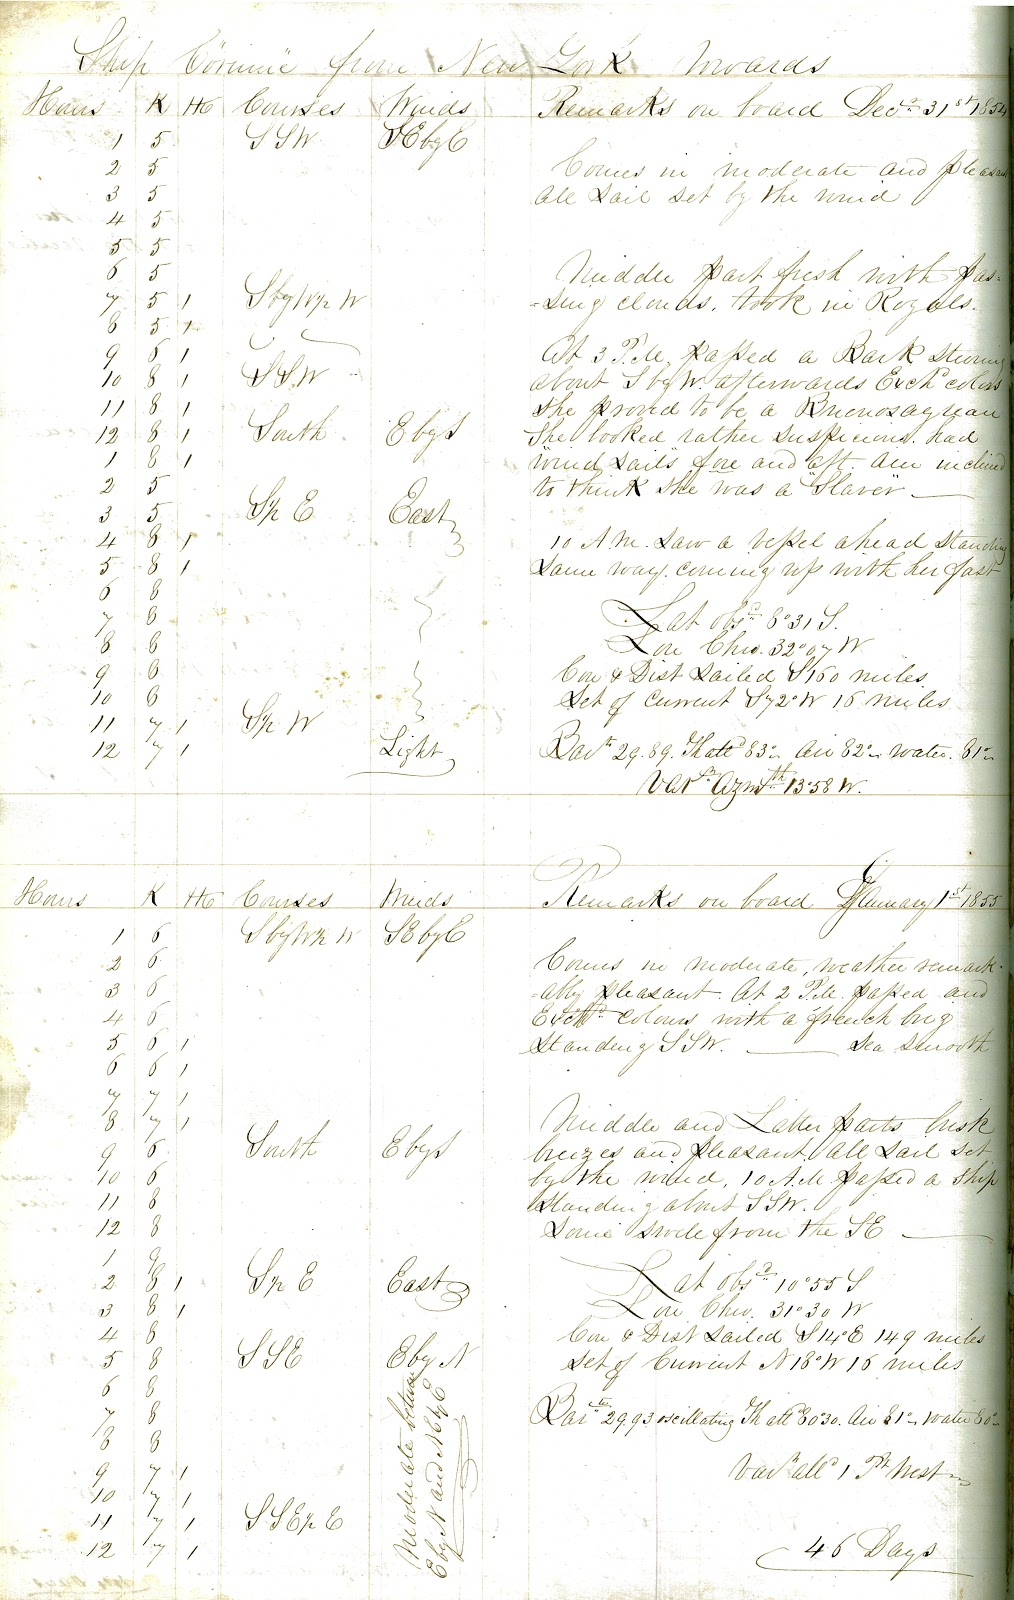 Ship Corinne from New York towards
Hours K HK Courses Winds Remarks on board Decr 31st 1854
1 5 SSW SEbyE
2 5 Comes in moderate and pleasant
3 5 all sail set by the wind
4 5
5 5
6 5 Middle part fresh with pas-
7 5 1 SbyW½W =sing clouds. took in Royals.
8 5 1
9 6 1 At 3 P.M. passed a Bark steering
10 8 1 SSW about SbyW. afterwards Exchd colors
11 8 1 She proved to be a Buenosayrean
12 8 1 South EbyS She looked rather suspicious. had
1 8 1 wind sails fore and aft. am inclined
2 5 to think she was a "Slaver"
3 5 S½E East
4 8 1 10 A.M. saw a vessel ahead standing
5 8 1 same way. coming up with her fast
6 8
7 8 Lat obsd 8°31 S.
8 8 Lon Chro. 32°07 W
9 6 Cou & Dist sailed S 160 miles
10 6 Set of Current S72°W 16 miles
11 7 1 S½W
12 7 1 Light Bar 29.89. Th attd 83° Air 82° water. 81°
Varn Azmth 13°58 W.
Hours K HK Courses Winds Remarks on board January 1st 1855
1 6 SbyW½W SEbyE
2 6 Comes in moderate, weather remark-
3 6 =ably pleasant. At 2 P.M. passed and
4 6 Exchd colours with a french brig
5 6 1 standing SSW. sea smooth
6 6 1
7 7 1
8 7 1 Middle and Latter parts brisk
9 6 South EbyS breezes and pleasant. all sail set
10 6 by the wind. 10 A.M. passed a ship
11 8 standing about SSW.
12 8 Some swell from the SE
1 9
2 8 1 S½E East Lat obsd 10°55 S
3 8 1 Lon Chro. 31°30 W
4 8 Cou & Dist sailed S14°E 149 miles
5 8 SSE EbyN Set of Current N18°W 16 miles
6 8
7 8 Bar 29.93 oscillating Th attd 80°30. Air 81° water 80°
8 8
9 7 1 Varn alld 1 Pt West
10 7 1
11 7 1 SSE½E
12 7 1 46 Days
Moderate between
EbyN and NEbyE